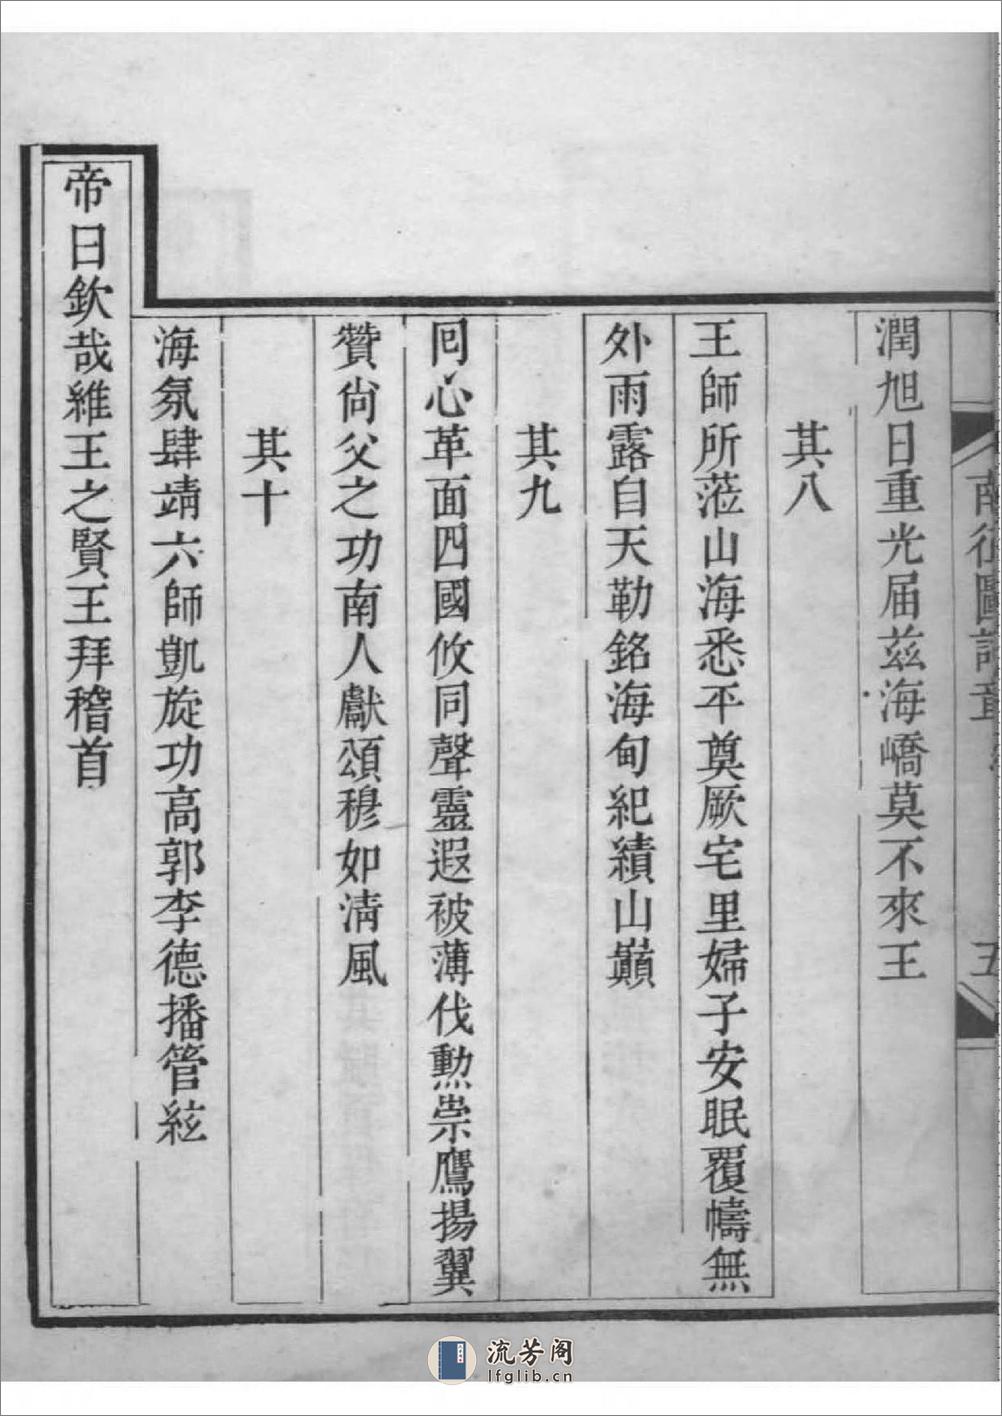 潤旭日重光届茲海嶠莫不來王
其八
王師所蒞山海悉平奠厥宅里婦子安眠覆幬無
外雨露自天勒銘海甸紀績山巔
其九
囘心革面四國攸同聲靈遐被薄伐勲崇鷹揚翼
贊尙父之功南人獻頌穆如淸風
其十
海氛肆靖六師凱旋功高郭李德播管絃
帝曰欽哉維王之賢王拜稽首
流芳阁
lfglib.cn